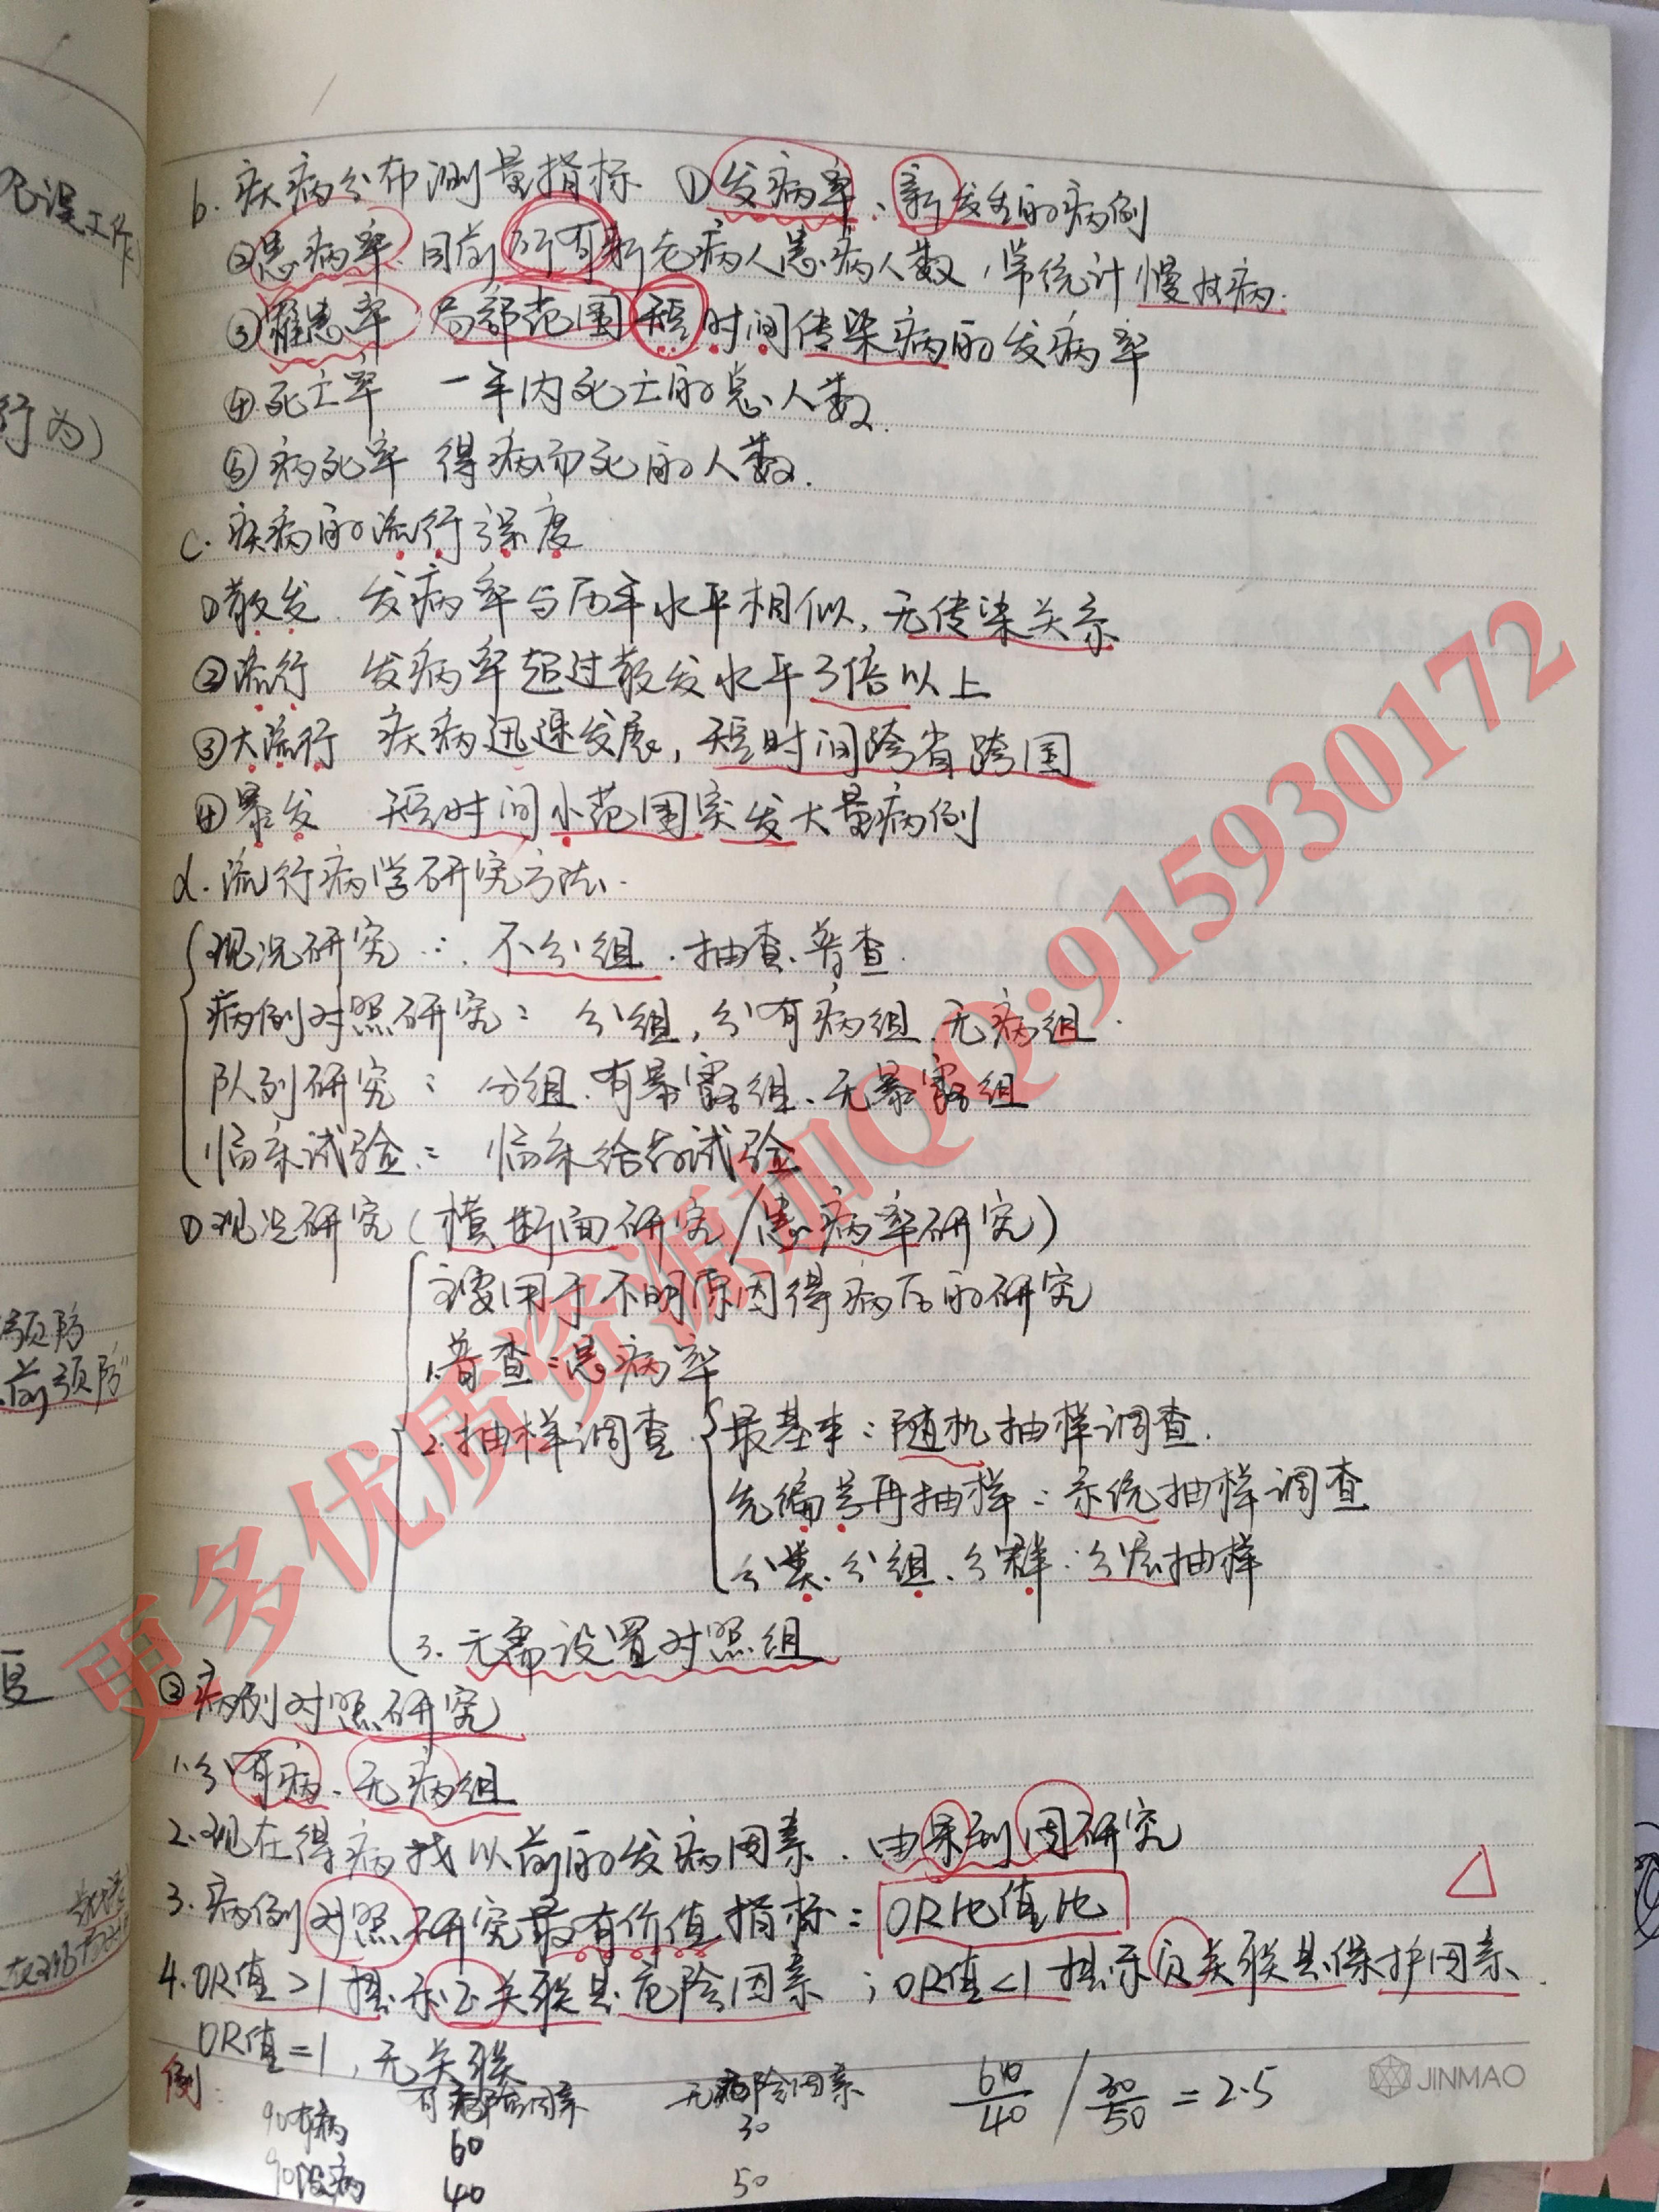 b. 疾病分布测量指标 ①发病率、新发生的病例
②患病率、目前所有新老病人患病人数,常统计慢性病.
③罹患率 局部范围短时间传染病的发病率
④死亡率 一年内死亡的总人数.
⑤病死率 得病而死的人数.
c. 疾病的流行强度
①散发、发病率与历年水平相似,无传染关系
②流行 发病率超过散发水平3倍以上
③大流行 疾病迅速发展,短时间跨省跨国
④暴发 短时间小范围突发大量病例
d. 流行病学研究方法.
现况研究: 不分组.抽查、普查.
病例对照研究: 分组,分有病组、无病组.
队列研究: 分组.有暴露组、无暴露组
临床试验: 临床给药试验
①现况研究(横断面研究/患病率研究)
主要用于不明原因得病后的研究
1.普查:总病率
2.抽样调查 最基本:随机抽样调查.
先编号再抽样:系统抽样调查
分类、分组、分群:分层抽样
3. 无需设置对照组
②病例对照研究
1.分有病、无病组
2.现在得病找以前的发病因素.由果到因研究
3.病例对照研究最有价值指标: OR比值比
4.OR值>1 提示正关联是危险因素;OR值<1 提示负关联是保护因素.
OR值=1,无关联
例: 有危险因素 无危险因素 60/40 / 30/50 = 2.5
90有病 60 30
90没病 40 50
JINMAO
更多优质资源加QQ:915930172
行为)
预防
前预防"